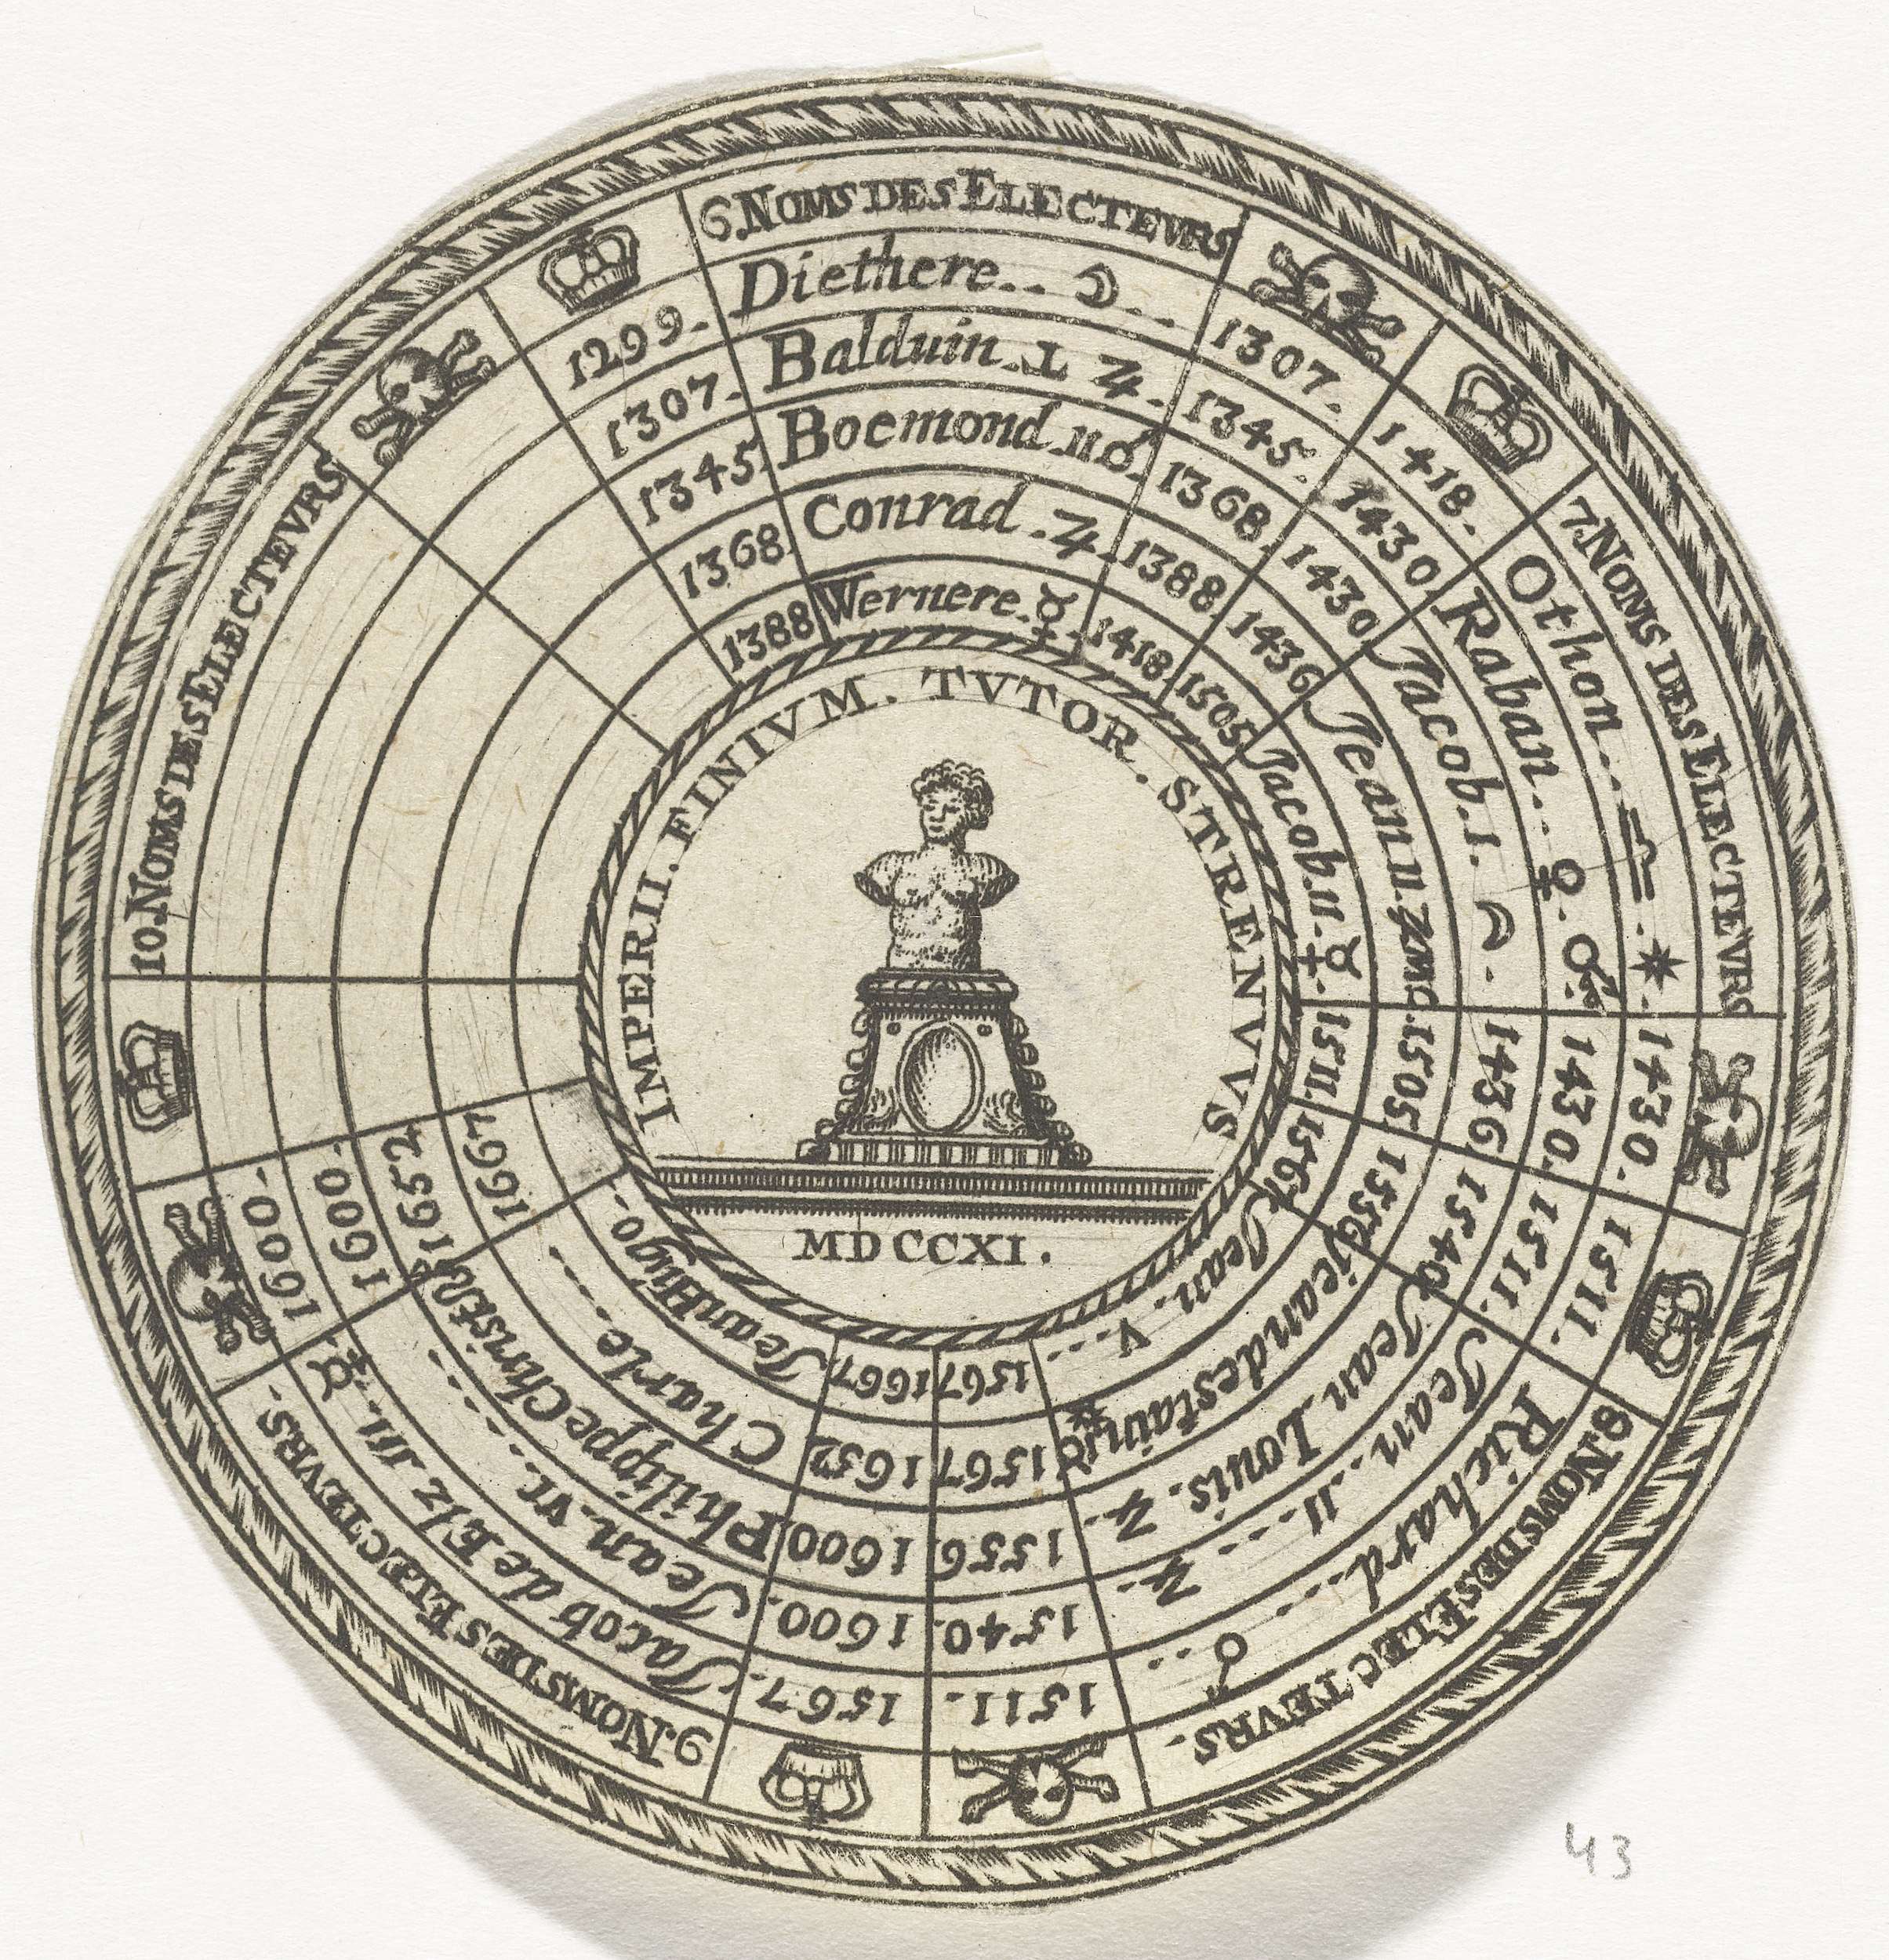 6. NOMS DES ELECTEVRS
1299. Diethere.. ☽... 1307.
1307. Balduin. I ♃. 1345.
1345. Boemond. II ♂ 1368.
1368. Conrad. ♃. 1388.
1388 Wernere. ☿. 1418.
7. NOMS DES ELECTEVRS
1418. Othon.. ♎.. ☀. 1430.
1430. Raban... ♀. ♂. 1430.
1430 Jacob. I. ☽. 1436
1436 Jean II ♃ 1505
1505 Jacob. II ☿. 1511.
8. NOMS DES ELECTEVRS.
1511. Richard... ♂... 1511.
1511. Jean.. II... ♃. 1540.
1540 Jean Louis. ♃. 1556
1556 Jean d'estainic 1567
1567 Jean. V... 1567
9. NOMS DES ELECTEVRS.
1567. Jacob de Elz. III. ☿ 1600.
1600. Jean. VI. .... 1600.
1600 Philippe Christ. 1652
1652 Charle ---- 1667
1667 Jean Hugo -
10. NOMS DES ELECTEVRS
IMPERII. FINIVM. TVTOR. STRENVVS
MDCCXI.
43